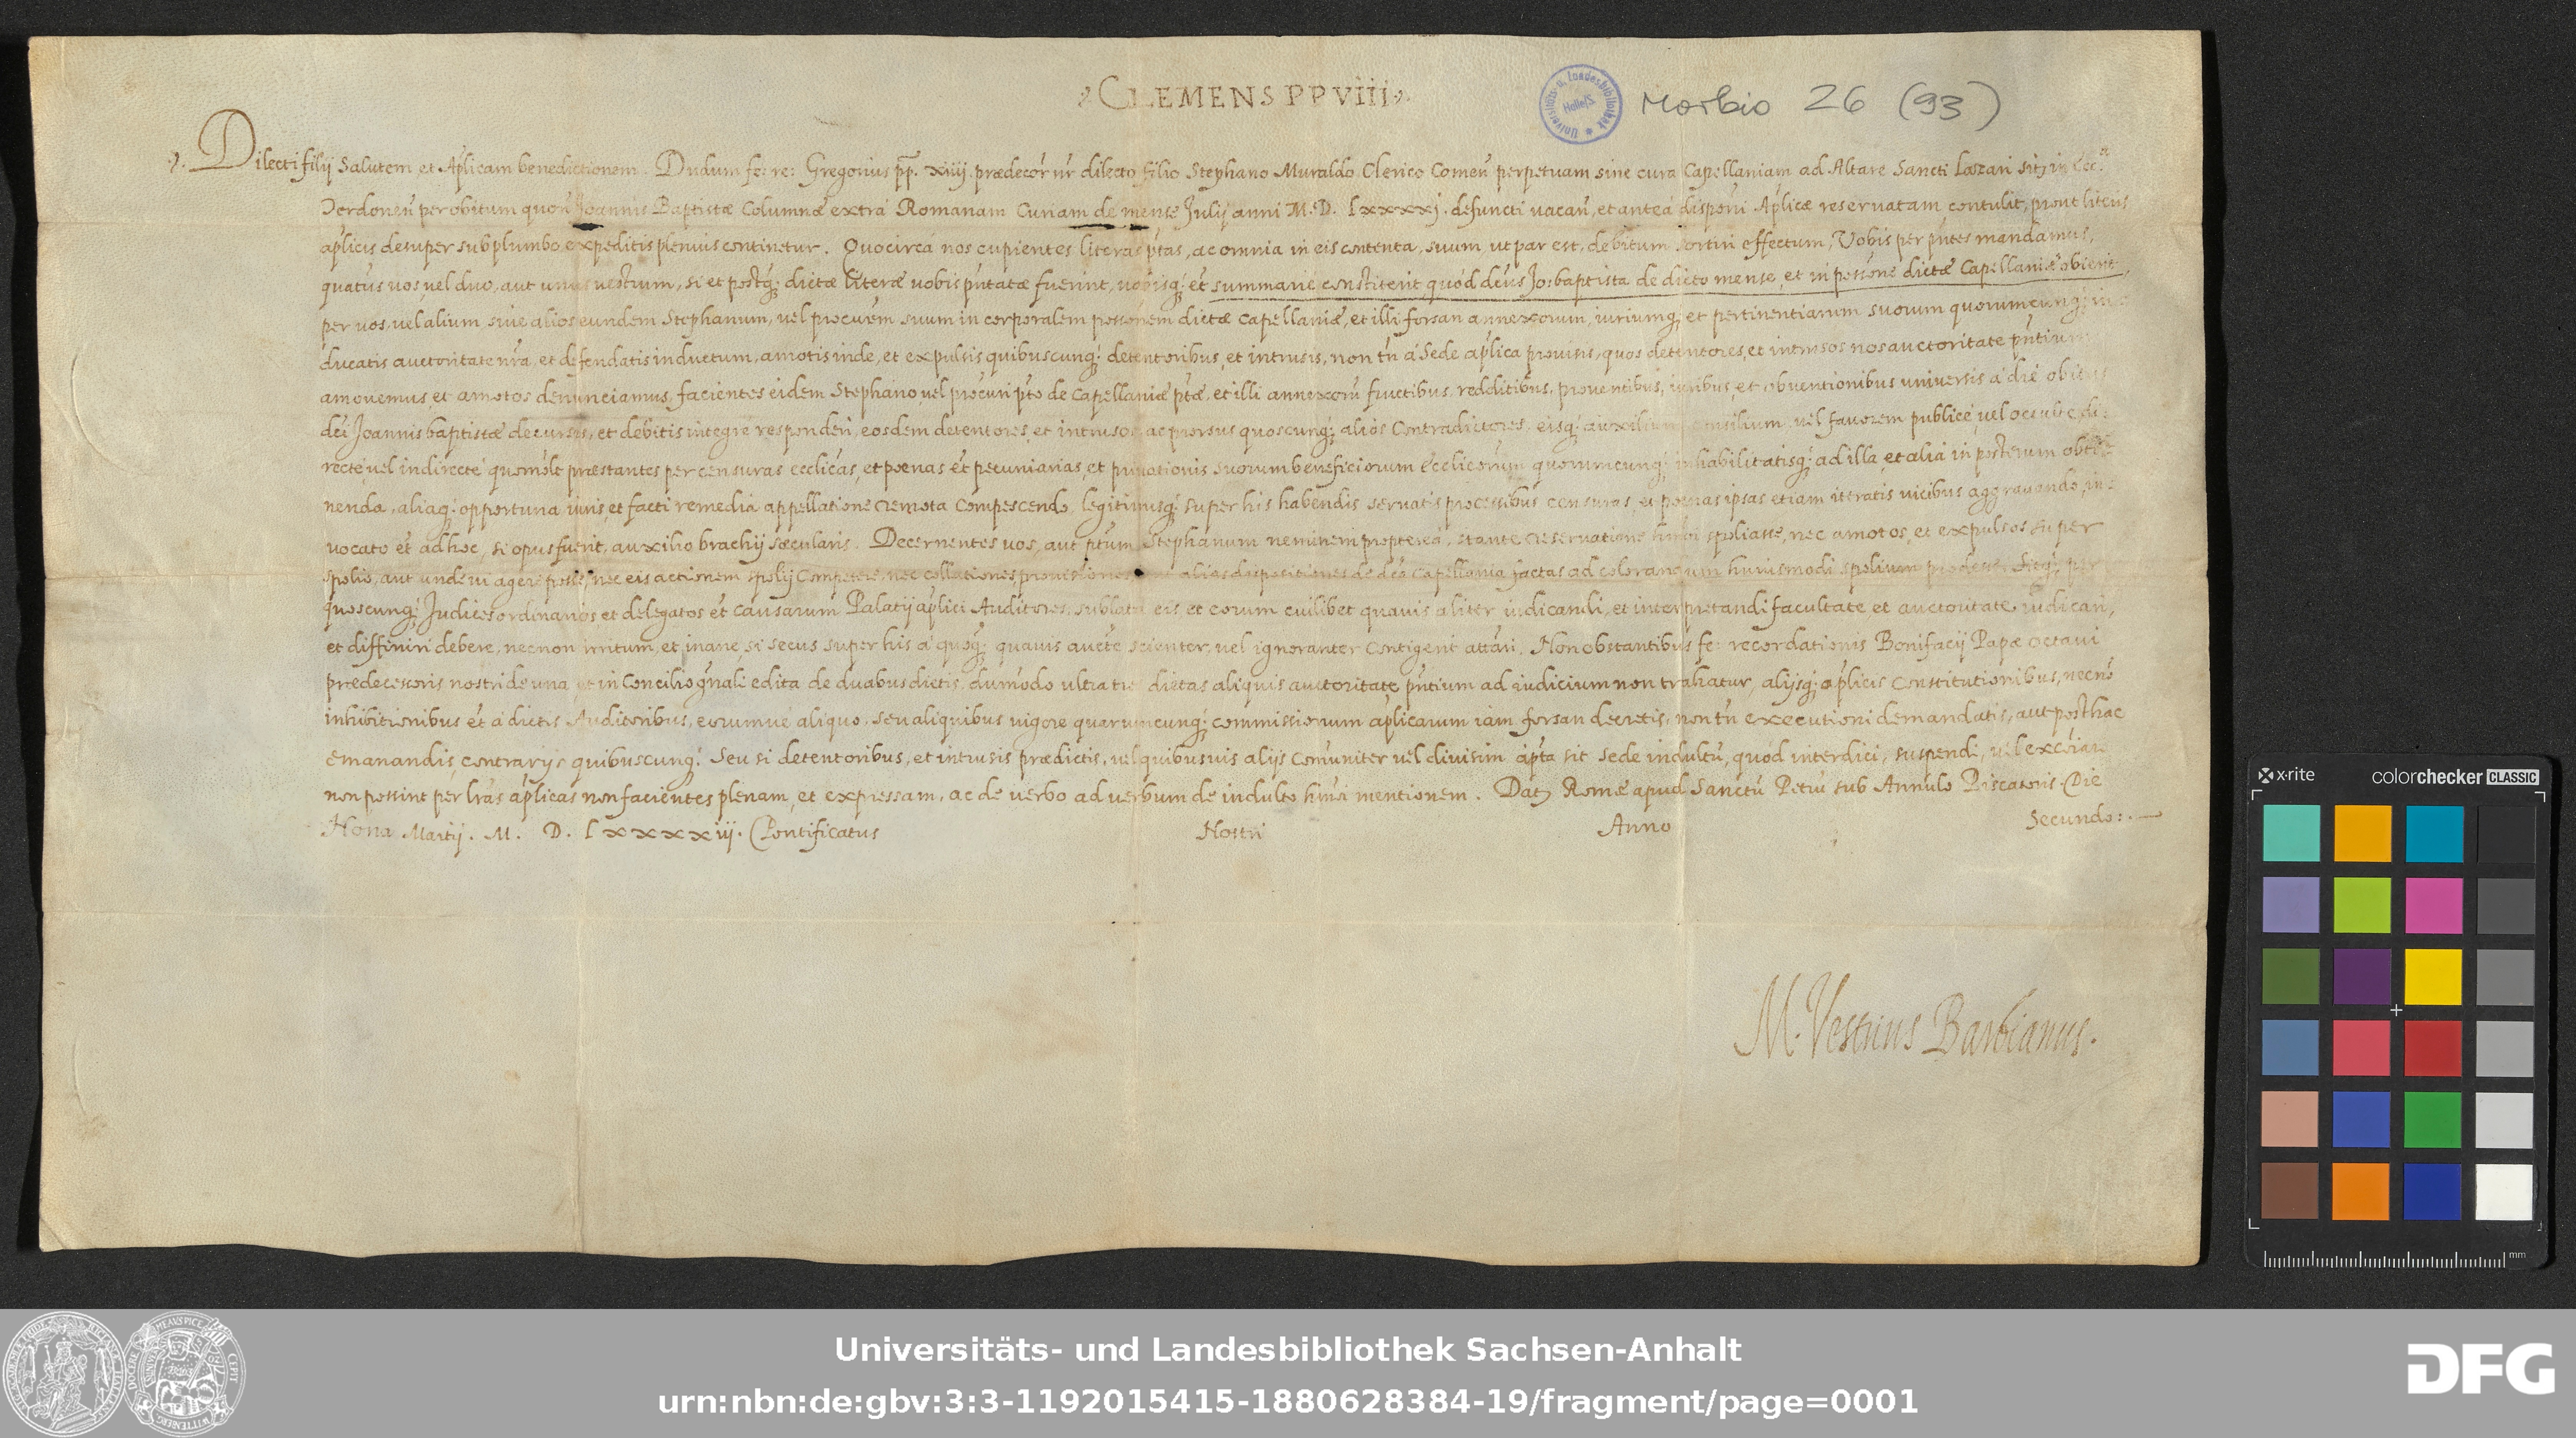 CLEMENS PP VIII
Morbio 26 (93)
Dilecti filij Salutem et Aplicam benedictionem. Dudum fe: re: Gregorius pp. xiiij. prædecór nr dilecto filio Stephano Muraldo Clerico Comeñ perpetuam sine cura Capellaniam ad Altare Sancti Lazari sitį in Ecc.ª
Derdoneñ per obitum quoñ Joannis Baptistæ Columnæ extrá Romanam Curiam de mense Julij anni M. D. lxxxxj. defuncti uacañ, et anteá disponi Aplicæ reseruatam contulit, prout literis
aplicis desuper sub plumbo expeditis plenius continetur. Quocircá nos cupientes literas ptas, ac omnia in eis contenta, suum, ut par est, debitum sortiri effectum, Vobis per pñtes mandamus,
quatus uos, uel duo, aut unus uestrum, si et postq; dictæ literæ uobis pñtatæ fuerint, uobisq; et summarie constiterit, quód dcús Jo: baptista de dicto mense, et in possone dictæ Capellaniæ obierit,
per uos, uel alium siue alios eundem Stephanum, uel procurem suum in corporalem possonem dictæ Capellaniæ, et illi forsan annexorum, iuriumq; et pertinentiarum suorum quorumcunq; in:
ducatis auctoritate nra, et defendatis inductum, amotis inde, et expulsis quibuscunq; detentoribus, et intrusis, non tñ á Sede aplica prouisis, quos detentores, et intrusos nos auctoritate pñtium
amouemus, et amotos denunciamus, facientes eidem Stephano, uel procuri pto de Capellaniæ ptæ, et illi annexorú fructibus, redditibus, prouentibus, iuribus, et obuentionibus uniuersis á die obitus
dci Joannis baptistæ decursis, et debitis integre responderi, eosdem detentores, et intrusos, ac prorsus quoscunq; alios Contradictores, eisq; auxilium, consilium, uel fauorem publicé uel occulte, di:
recté, uel indirecté quomolt præstantes per censuras ecclicas, et poenas et pecuniarias, et priuationis suorum beneficiorum ecclicorum quorumcunq; inhabilitatisq; ad illa, et alia in posterum obti:
nenda, aliaq; opportuna iuris, et facti remedia appellatione remota Compescendo, legitimisq; super his habendis seruatis processibus censuras, et poenas ipsas etiam iteratis uicibus aggrauando, in:
uocato et ad hoc, si opus fuerit, auxilio brachij sæcularis. Decernentes uos, aut ptum Stephanum neminem propterea, stante reseruatione hmoi spoliasse, nec amotos, et expulsos super
spolio, aut unde ui agere posse, nec eis actionem spolij Competere, nec collationes prouisiones alias dispositiones de dca Capellania factas ad colorandum huiusmodi spolium prodesse, Sicq; per
quoscunq; Judices ordinarios et delegatos et Causarum Palatij aplici Auditores, sublata eis et eorum cuilibet quauis aliter iudicandi, et interpretandi facultate, et auctoritate iudicari,
et diffiniri debere, necnon irritum, et inane si secus super his á quoq; quauis aucte scienter, uel ignoranter Contigerit attári. Non obstantibus fe: recordationis Bonifacij Papæ octaui
prædecessoris nostri de una, et in Concilio gñali edita de duabus dietis, dummodo ultra tres dietas aliquis auctoritate pñtium ad iudicium non trahatur, alijsq; aplicis Constitutionibus, necnó
inhibitionibus et á dictis Auditoribus, eorumue aliquo, seu aliquibus uigore quarumcunq; commissionum aplicarum iam forsan decretis, non tñ executioni demandatis, aut posthac
emanandis, contrarijs quibuscunq; Seu si detentoribus, et intrusis prædictis, uel quibusuis alijs Comuniter uel diuisim ápta sit sede indultú, quód interdici, suspendi, uel excoicari
non possint per lras aplicas non facientes plenam, et expressam, ac de uerbo ad uerbum de indulto hmoi mentionem. Datį Romæ apud Sanctú Petrú sub Annulo Piscatoris Die
Nona Martij. M. D. lxxxxiij. Pontificatus Nostri Anno Secundo:.
M. Vestrius Barbianus.
x-rite colorchecker CLASSIC
mm
Universitäts- und Landesbibliothek Sachsen-Anhalt
urn:nbn:de:gbv:3:3-1192015415-1880628384-19/fragment/page=0001
DFG